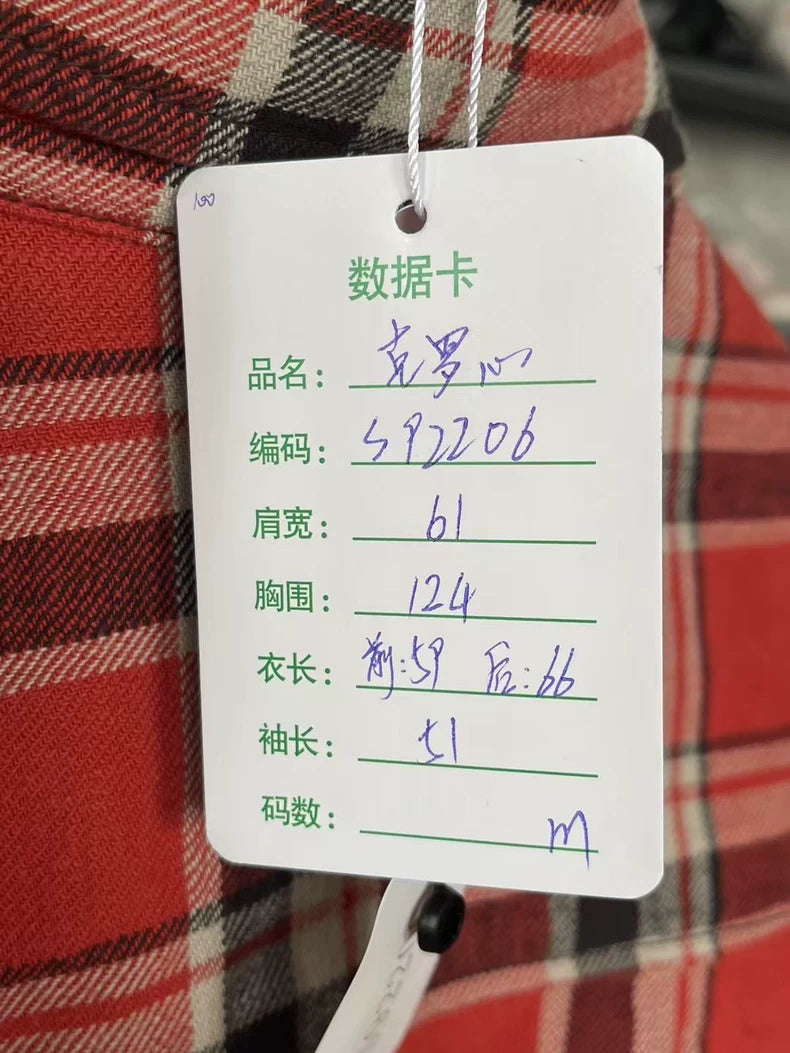 100
数据卡
品名: 克罗心
编码: SP2206
肩宽: 61
胸围: 124
衣长: 前:59 后:66
袖长: 51
码数: m